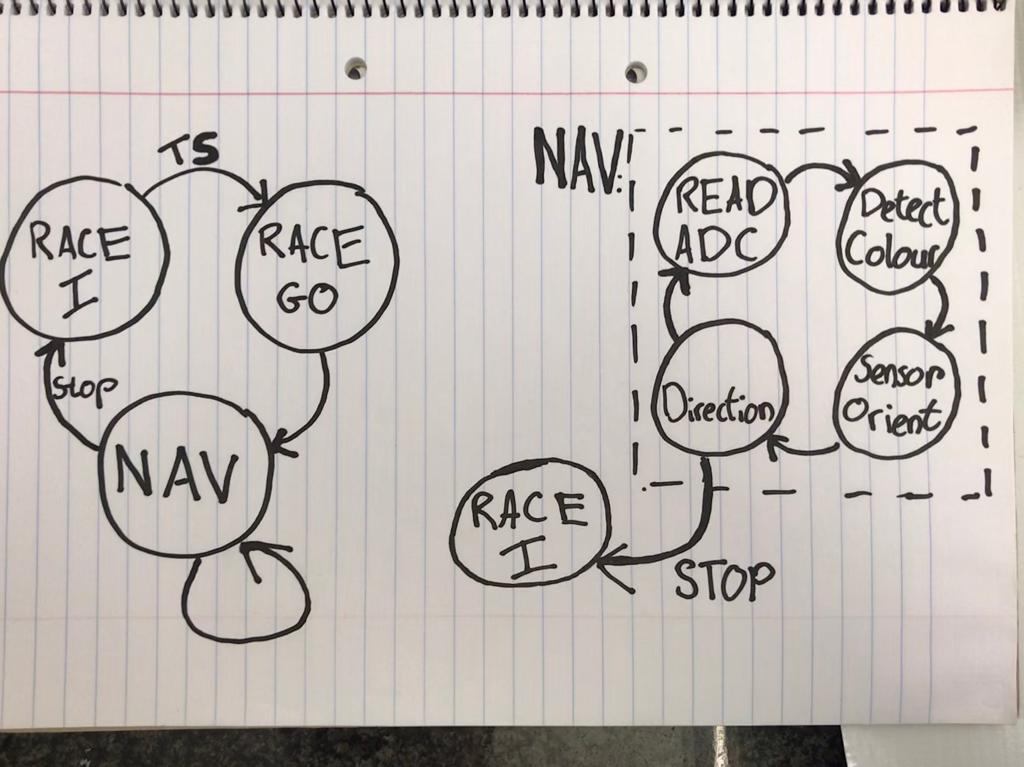 TS
RACE
I
RACE
GO
Stop
NAV
NAV:
READ
ADC
Detect
Colour
Sensor
Orient
Direction
RACE
I
STOP